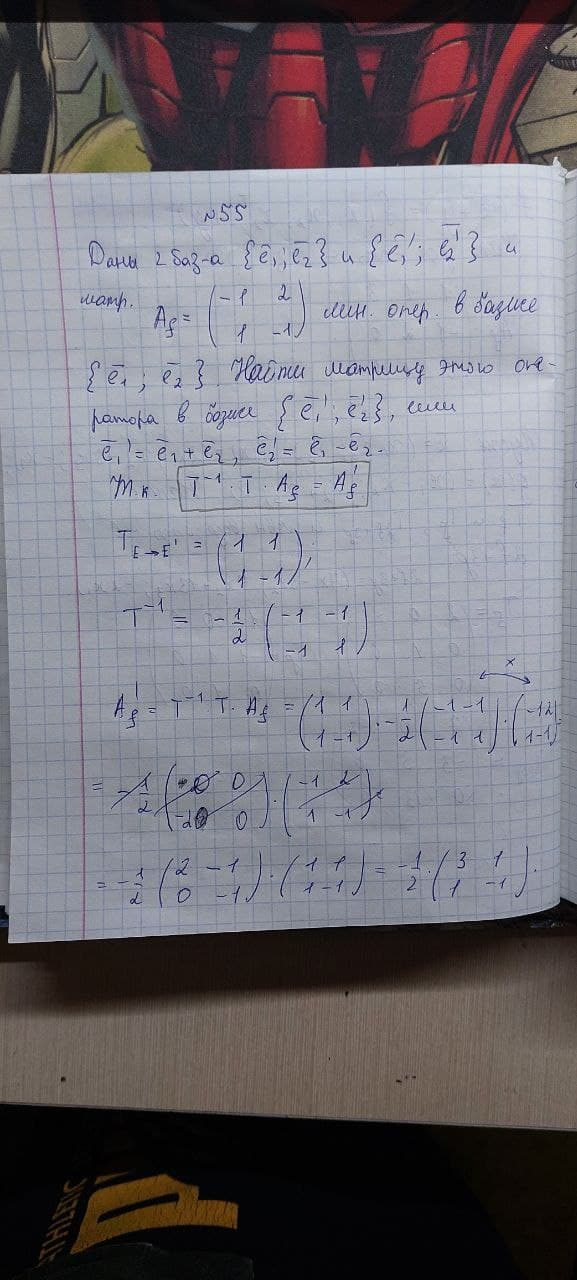 №55
Даны 2 баз-а {ē₁; ē₂} и {ē₁'; ē₂'} и
матр. A_f = (-1 2; 1 -1) лин. опер. в базисе
{ē₁; ē₂}. Найти матрицу этого опе-
ратора в базисе {ē₁'; ē₂'}, если
ē₁' = ē₁ + ē₂, ē₂' = ē₁ - ē₂.
Т.к. T⁻¹ · T · A_f = A_f'
T_{E→E'} = (1 1; 1 -1);
T⁻¹ = -1/2 (-1 -1; -1 1)
x
A_f' = T⁻¹ T · A_f = (1 1; 1 -1) · -1/2 (-1 -1; -1 1) · (-1 2; 1 -1) =
= -1/2 ( 0 0; -2 0) · (-1 2; 1 -1) =
= -1/2 (2 -1; 0 -1) · (1 1; 1 -1) = -1/2 · (3 1; 1 -1).